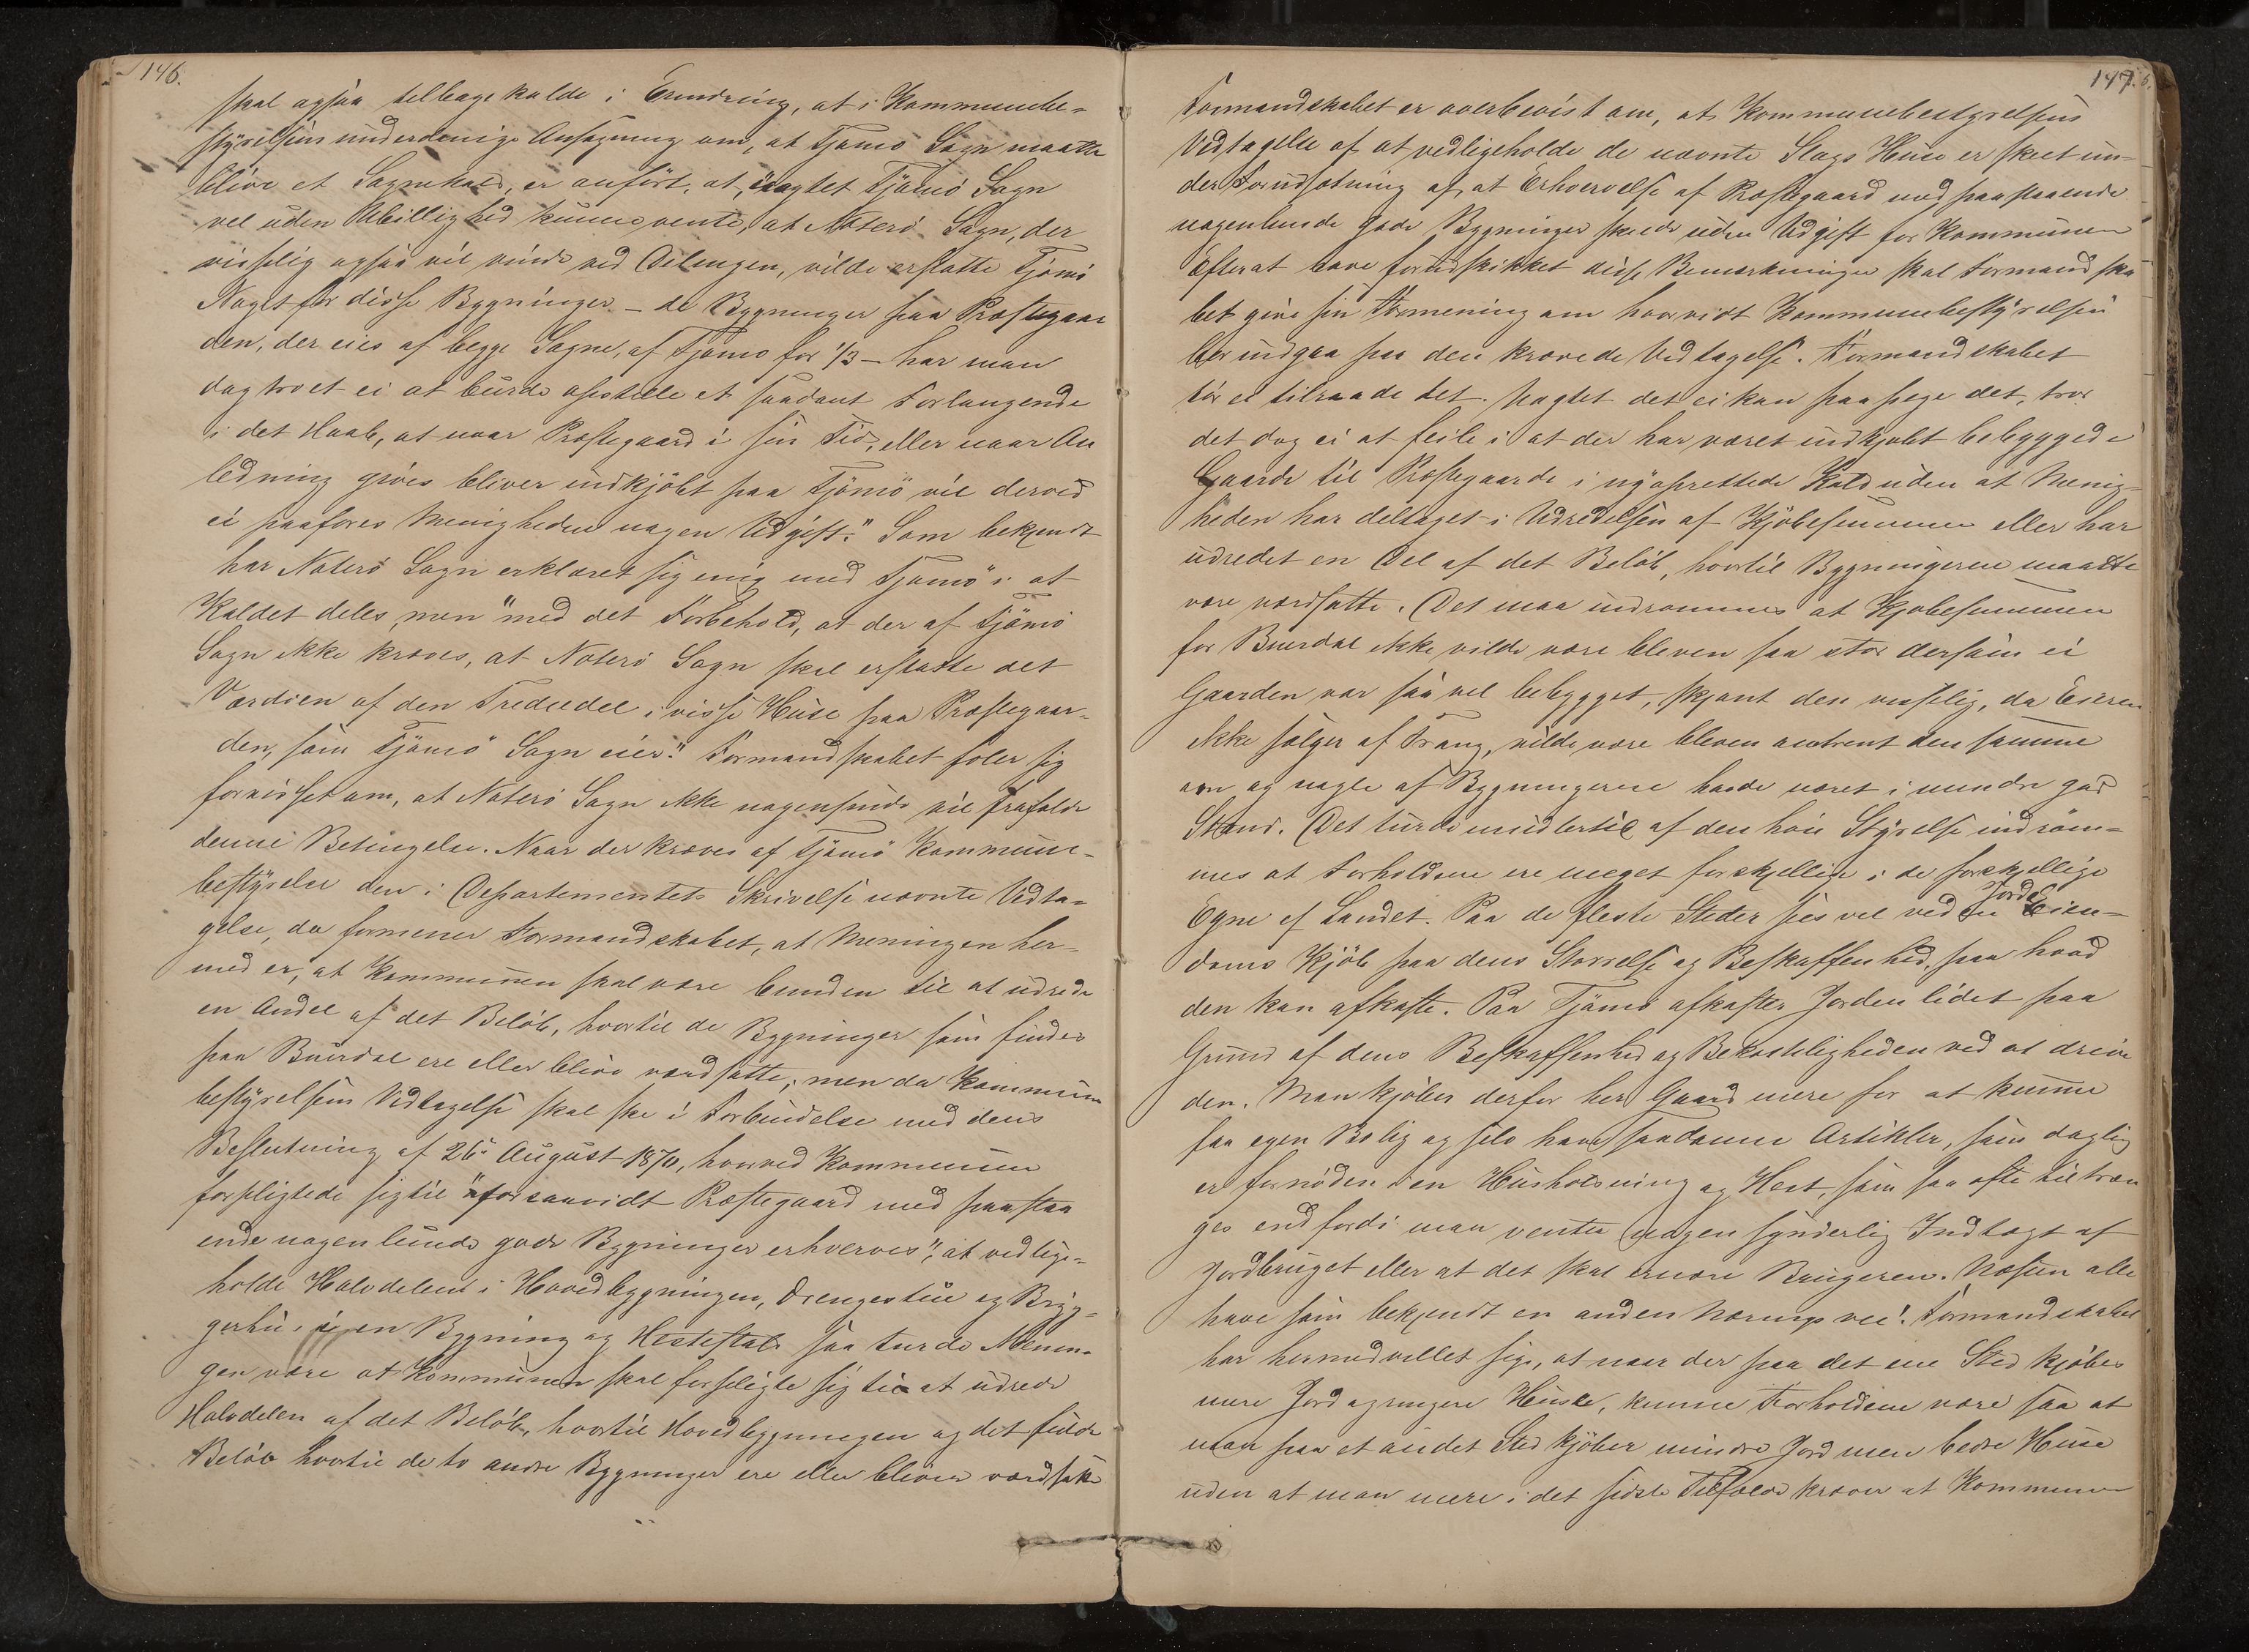 146.
skal ogsaa tilbagekalde i Erindring, at i Kommunebe-
styrelsens underdanige Ansøgning om, at Tjømø Sogn maatte
blive et Sognekald, er anført, at "uagtet Tjømø Sogn
vel uden Ubillighed kunne vente, at Nøterø Sogn, der
visselig ogsaa vil vinde ved Delingen, vilde erstatte Tjømø
Noget for disse Bygninger – de Bygninger paa Præstegaar
den, der eies af begge Sogne, af Tjømø for 1/3 – har man
dog troet ei at burde opstille et saadant Forlangende
i det Haab, at naar Præstegaard i sin Tid, eller naar An
ledning gives bliver indkjøbt paa Tjømø vil derved
ei paaføres Menigheden nogen Udgift." Som bekjendt
har Nøterø Sogn erklæret sig enig med Tjømø i at
Kaldet deles, men "med det Forbehold, at der af Tjømø
Sogn ikke kræves, at Nøterø Sogn skal erstatte det
Værdien af den Trediedel i visse Huse paa Præstegaar-
den, som Tjømø Sogn eier." Formandskabet føler sig
forvisset om, at Nøterø Sogn ikke nogensinde vil frafalde
denne Betingelse. Naar der kræves af Tjømø Kommune-
bestyrelse den i Departementets Skrivelse nævnte Vedta-
gelse, da formener Formandskabet, at Meningen her-
med er, at Kommunen skal være bunden til at udrede
en Andel af det Beløb, hvortil de Bygninger som findes
paa Buerdal ere eller blive værdsatte; men da Kommune
bestyrelsens Vedtagelse skal ske i Forbindelse med dens
Beslutning af 26. August 1870, hvorved Kommunen
forpligtede sig til "forsaavidt Præstegaard med paastaa
ende nogenlunde gode Bygninger erhverves", at vedlige-
holde Halvdelen i Hovedbygningen, Drengestue og Bryg-
gerhus i en Bygning og Hestestald saa turde Menin-
gen være at Kommunen skal forpligte sig til at udrede
Halvdelen af det Beløb, hvortil Hovedbygningen og det fulde
Beløb hvortil de to andre Bygninger ere eller bliver værdsatte
147.
Formandskabet er overbevist om, at Kommunebestyrelsens
Vedtagelse af at vedligeholde de nævnte Slags Huse er skeet un-
der Forudsætning af, at Erhvervelse af Præstegaard med paastaaende
nogenlunde gode Bygninger skeede uden Udgift for Kommunen
Efterat have forudskikket disse Bemærkninger skal Formandska
bet give sin Formening om hvorvidt Kommunebestyrelsen
bør indgaa paa den krævede Vedtagelse. Formandskabet
tør ei tilraade det. Uagtet det ei kan paapege det, tror
det dog ei at feile i at der har været indkjøbt bebyggede
Gaarde til Præstegaarde i nyoprettede Kald uden at Menig-
heden har deltaget i Udredelsen af Kjøbesummen eller har
udredet en Del af det Beløb, hvortil Bygningerne maatte
være værdsatte. Det maa indrømmes at Kjøbesummen
for Buerdal ikke vilde være bleven saa stor dersom ei
Gaarden var saa vel bebygget, skjønt den visselig, da Eieren
ikke sælger af Trang, vilde være bleven omtrent den samme
om og nogle af Bygningerne havde været i mindre god
Stand. Det turde imidlertid af den høie Styrelse indrøm-
mes at Forholdene ere meget forskjellige i de forskjellige
Egne af Landet. Paa de fleste Steder sees vel ved en Jorde Eien-
doms Kjøb paa dens Størrelse og Beskaffenhed, paa hvad
den kan afkaste. Paa Tjømø afkaster Jorden lidet paa
Grund af dens Beskaffenhed og Bekosteligheden ved at drive
den. Man kjøber derfor her Gaard mere for at kunne
faa egen Bolig og selv have saadanne Artikler, som daglig
er fornøden i en Husholdning og Hest, som saa ofte tiltræn
ges end fordi man venter nogen synderlig Indtægt af
Jordbruget eller at det skal ernære Brugeren. Næsten alle
have som bekjendt en anden Næringsvei! Formandskabet
har hermed villet sige, at naar der paa det ene Sted kjøbes
mere Jord og ringere Huse, kunne Forholdene være saa at
man paa et andet Sted kjøber mindre Jord men bedre Huse
uden at man mere i det sidste Tilfælde kræver at Kommunen